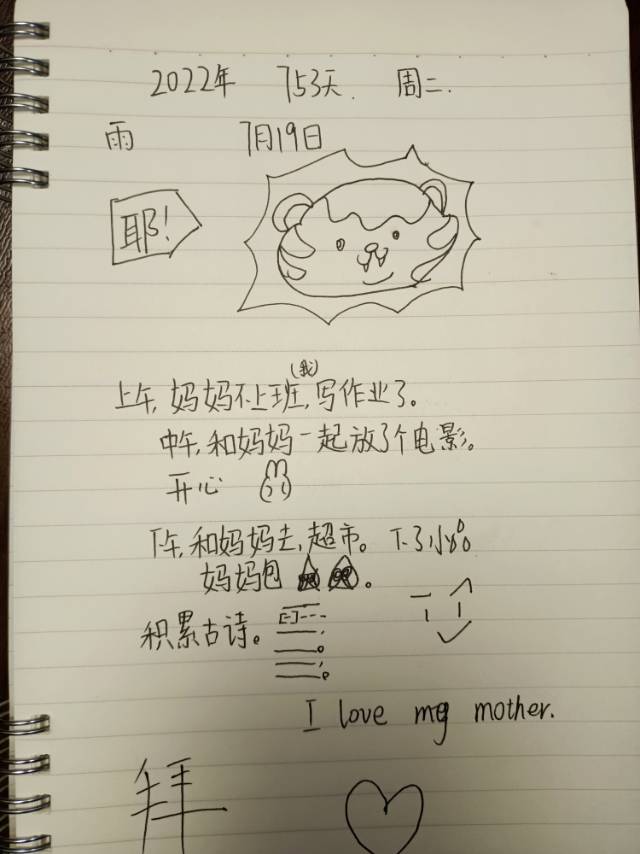 2022年 753天. 周二.
雨 7月19日
耶!
(我)
上午,妈妈不上班,写作业了。
中午,和妈妈一起放了个电影。
开心
下午,和妈妈去,超市。下了小
妈妈包
积累古诗。
I love my mother.
拜